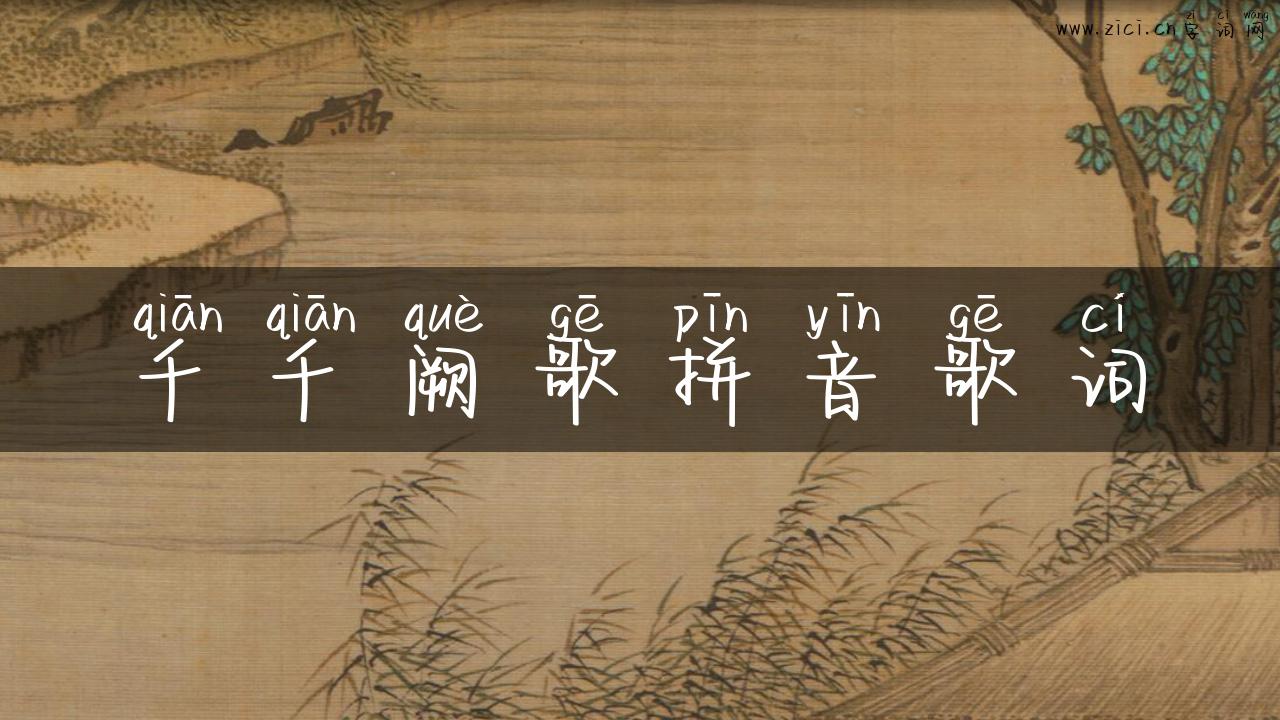 zì cí wǎng
www.zici.cn 字词网
qiān qiān què gē pīn yīn gē cí
千千阙歌拼音歌词